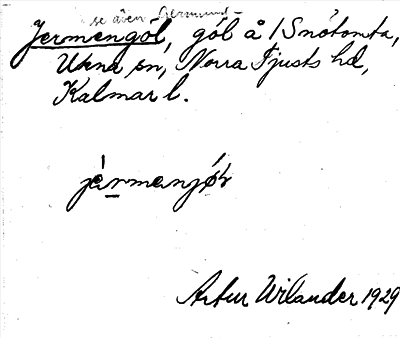 se även Germund-
Jermengöl, göl å 1 Snötomta,
Ukna sn, Norra Tjusts hd,
Kalmar l.
järmanjö̀l
Artur Wilander 1929